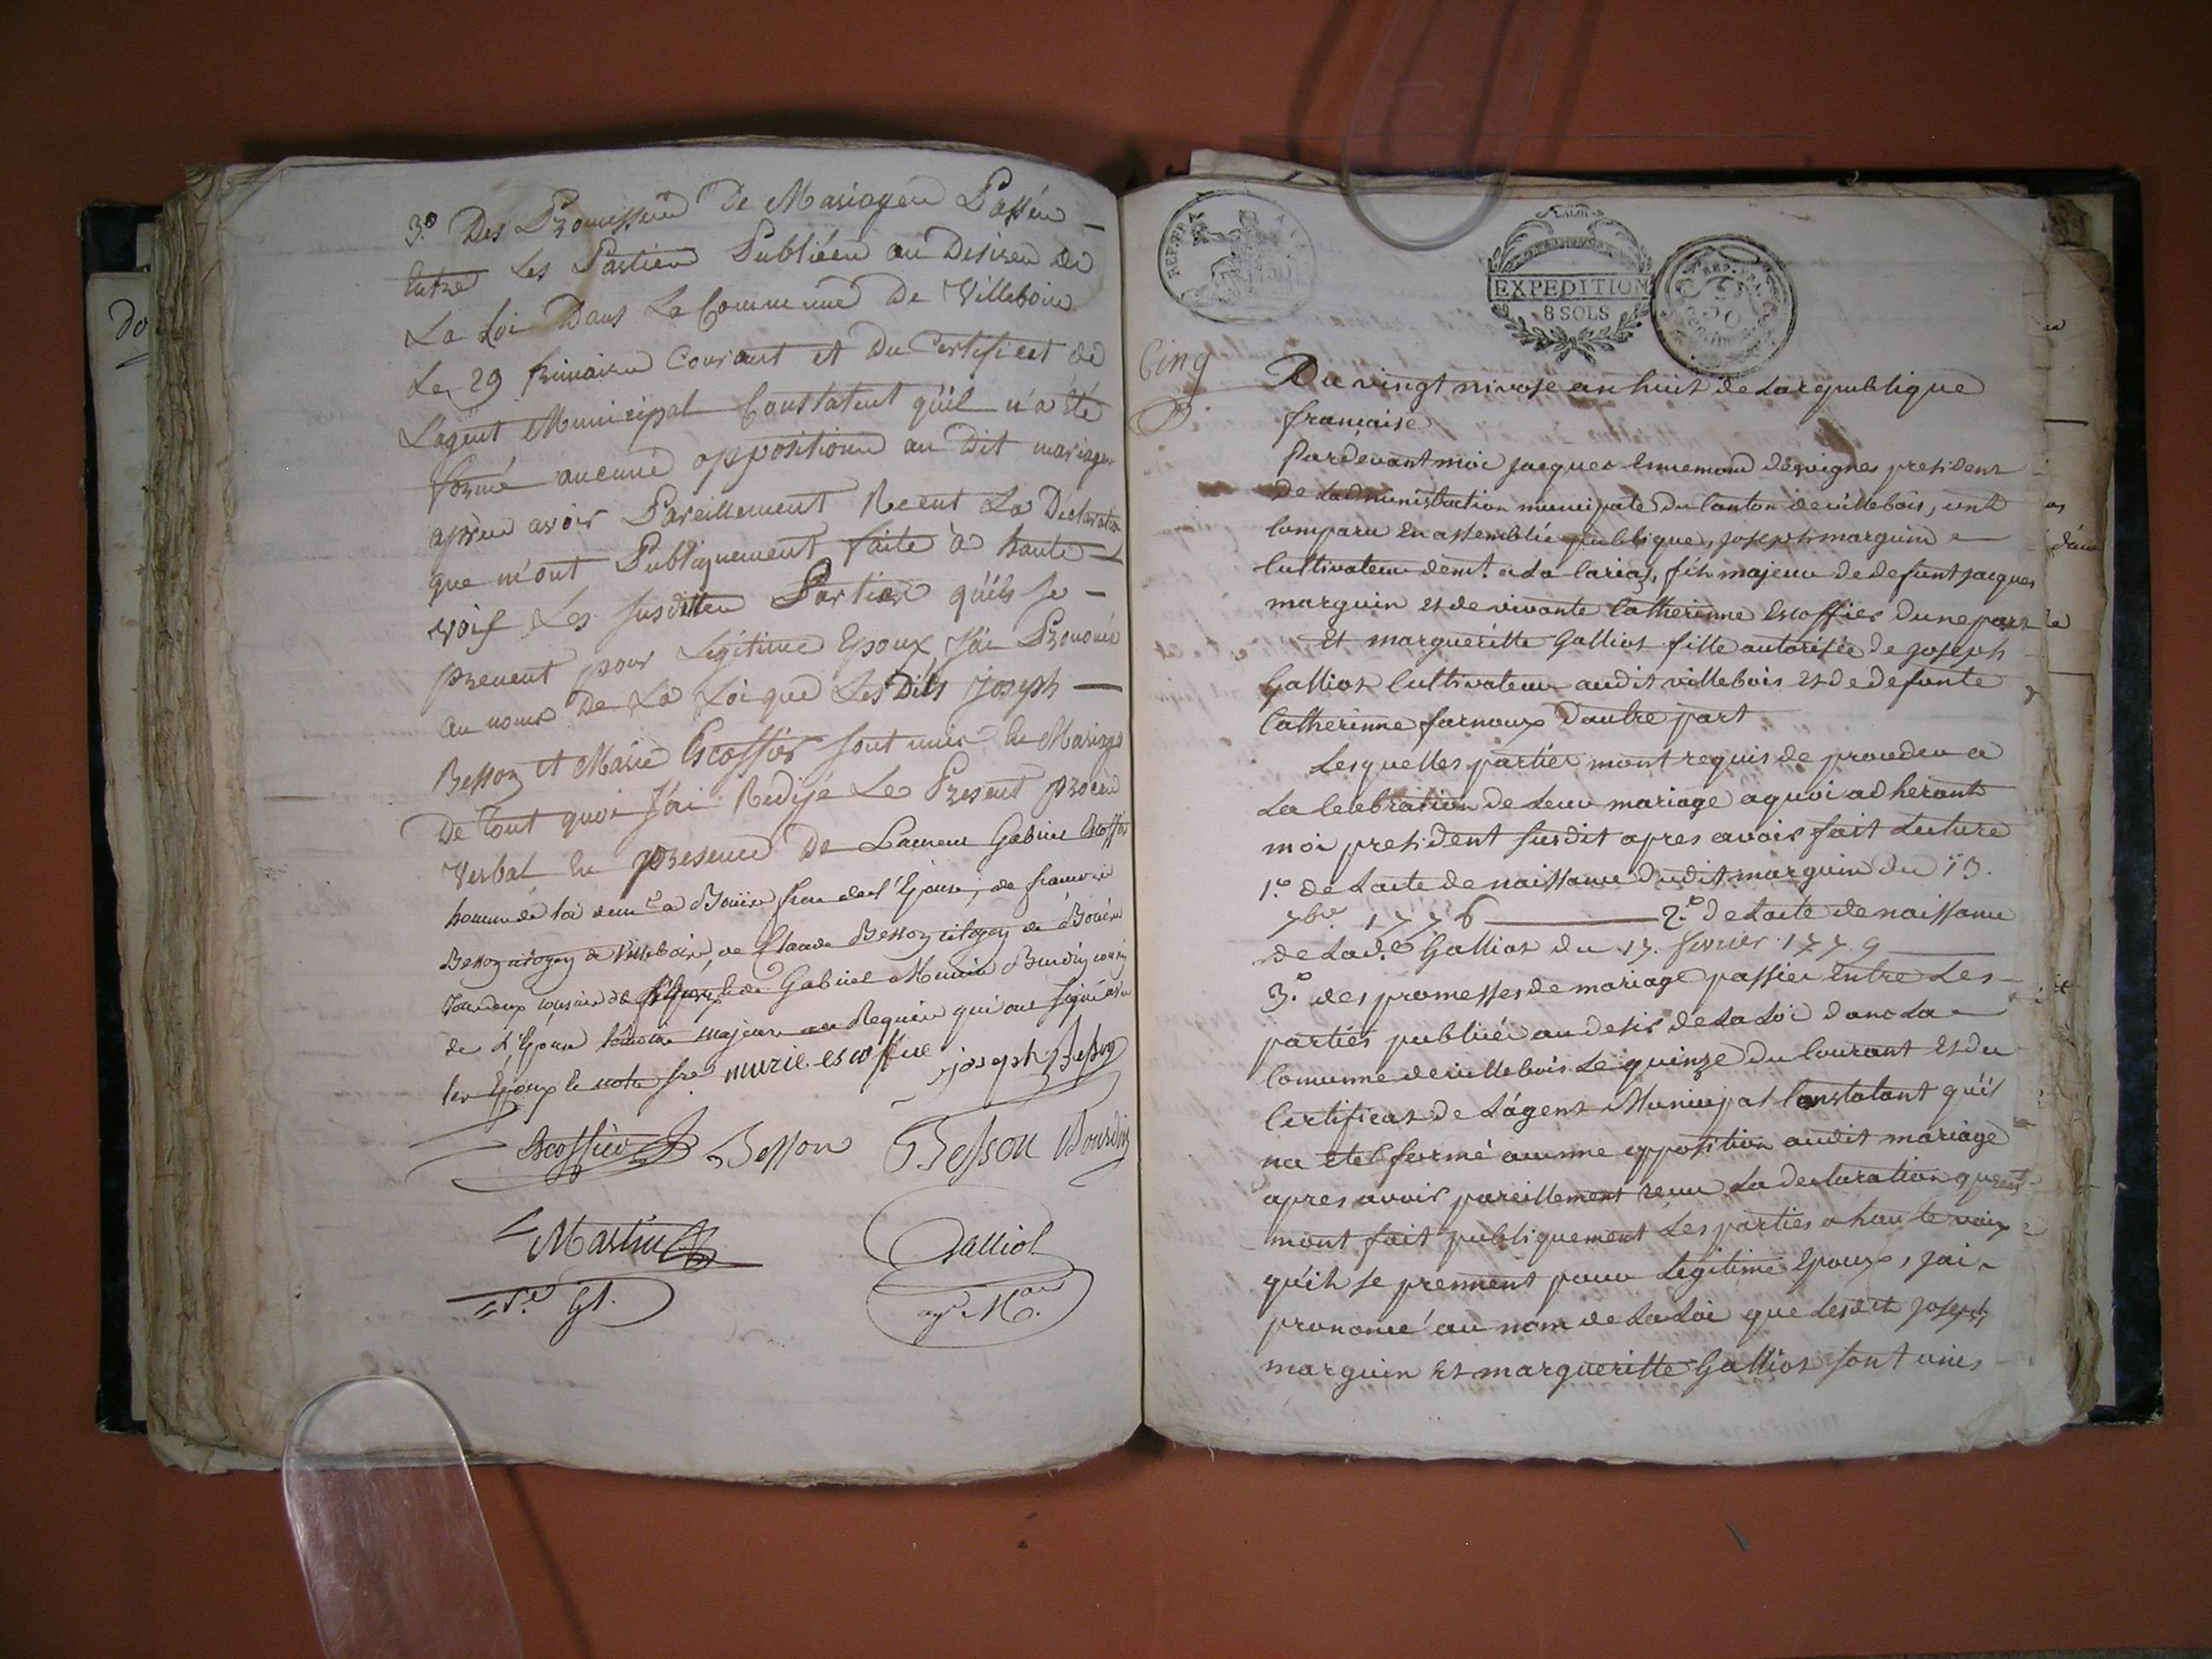 3.o Des Promesses De Mariages Passées
Entre Les Parties Publiées au Desires de
La Loi Dans La Commune De Villebois
Le 29 frimaire Courant et Du Certificat de
L'agent Municipal Constatent qu'il n'a été
formé aucunne oppositions au Dit mariage
après avoir Pareillement Recent La Declaration
que m'ont Publiquement faite à haute
voix Les susdittes Parties qu'ils se
prenent pour Legitime Epoux J'ai Prononcé
au noms De La Loi que Les Dits Joseph
Besson et Marie Escoffier sont unis En Mariage
De tout quoi J'ai Redigé Le Present procès
Verbal En presence De Laurent Gabriel Escoffier
homme de loi dem.t a Bouis frere de l'Epouse, de francois
Besson citoyen de Villebois, de Claude Besson citoyen de Bouis
Tous deux cousins de l'Epoux & de Gabriel Marie Burdin cousin
de L'Epouse majeurs Requis qui ont signé avec
les Epoux & notre sre marie escoffier joseph Besson
Escoffier Besson Besson Bourdin
Martin Galliot
Sre Gl. agt Mal
EXPEDITION
8 SOLS
REP. FRA.
50
REP. FRA.
Cinq
Du vingt nivose an huit de la republique
francaise
Pardevant moi jacques Ennemond Desvignes president
de Ladministration municipale Du Canton de villebois, ont
Comparu En assemblée publique, joseph marguin
Cultivateur demt. a La Cariaz, fils majeur de defunt jacques
marguin et de vivante Catherinne Escoffier Dune part
Et margueritte Galliot fille autorisée de joseph
Galliot Cultivateur audit villebois et de defunte
Catherinne farnoux D'autre part
Lesquelles parties mont requis de proceder a
La Celebration de Leur mariage a quoi adherant
moi president susdit apres avoir fait Lecture
1.o de Lacte de naissance Dudit marguin du 13.
7bre 1776 2.o de Lacte de naissance
de Lad.e Galliot du 17. fevrier 1779
3.o des promesses de mariage passées Entre Les
parties publiée au desir de La Loi dans La
Commune de villebois Le quinze Du Courant et du
Certificat de L'agent Municipal Constatant qu'il
na Eté formé aucunne opposition audit mariage
apres avoir pareillement recue La declaration quont
mont fait publiquement Les parties a haute voix
qu'ils se prennent pour Legitime Epoux, j'ai
prononcé au nom de La Loi que Lesdits joseph
marguin et margueritte Galliot sont unis